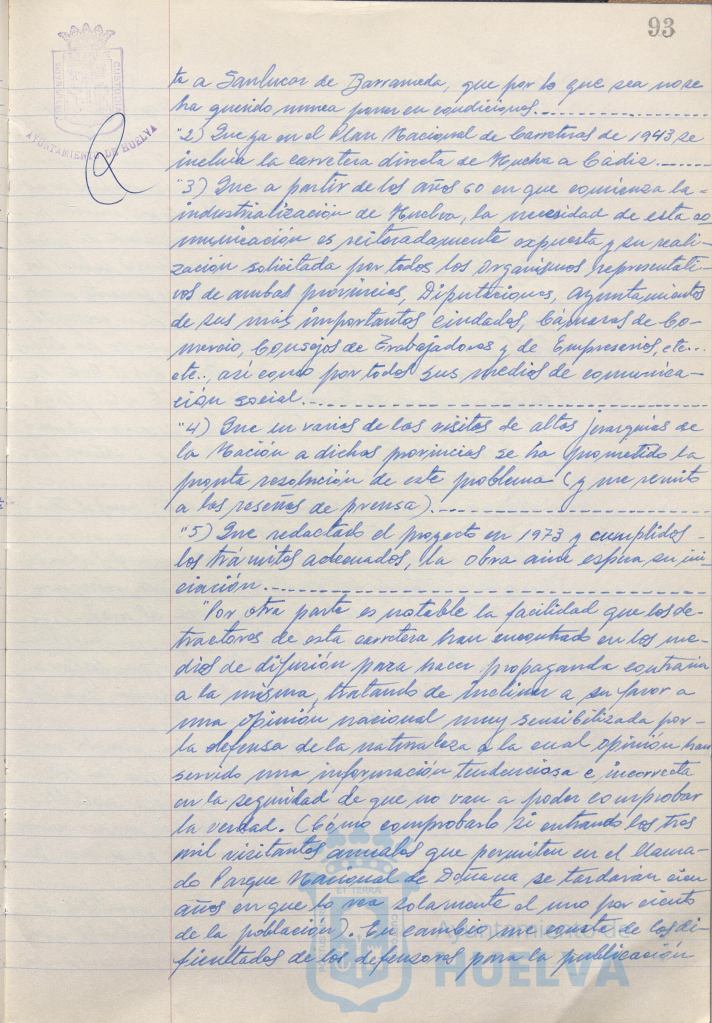 93
AYUNTAMIENTO DE HUELVA
te a Sanlucar de Barrameda, que por lo que sea no se
ha querido nunca poner en condiciones.
"2) Que ya en el Plan Nacional de Carreteras de 1943 se
incluía la carretera directa de Huelva a Cádiz.
"3) Que a partir de los años 60 en que comienza la-
industrialización de Huelva, la necesidad de esta co
municación es reiteradamente expuesta y su reali-
zación solicitada por todos los organismos representati-
vos de ambas provincias, Diputaciones, Ayuntamientos
de sus más importantes ciudades, Cámaras de Co-
mercio, Consejos de Trabajadores y de Empresarios, etc..
etc.., así como por todos sus medios de comunica-
ción social.
"4) Que en varias de las visitas de altas jerarquías de
la Nación a dichas provincias se ha prometido la
pronta resolución de este problema (y me remito
a las reseñas de prensa).
"5) Que redactado el proyecto en 1973 y cumplidos-
los trámites adecuados, la obra aún espera su ini
ciación.
"Por otra parte es notable la facilidad que los de-
tractores de esta carretera han encontrado en los me-
dios de difusión para hacer propaganda contraria
a la misma, tratando de inclinar a su favor a
una opinión nacional muy sensibilizada por-
la defensa de la naturaleza a la cual opinión han
servido una información tendenciosa e incorrecta
en la seguridad de que no van a poder comprobar
la verdad. (Cómo comprobarlo si entrando los tres
mil visitantes anuales que permiten en el llama-
do Parque Nacional de Doñana se tardarán cien
años en que lo vea solamente el uno por ciento
de la población). En cambio me consta de las di-
ficultades de los defensores para la publicación
Ayuntamiento de
HUELVA